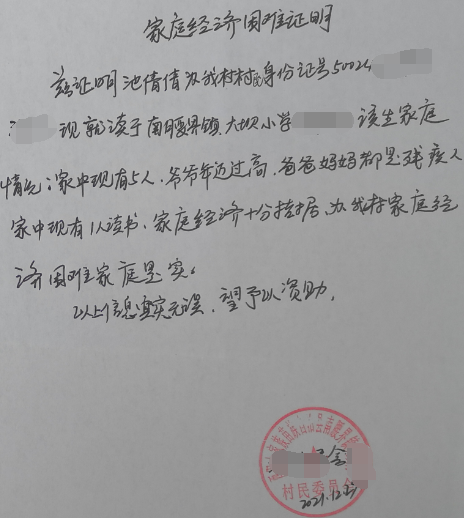 家庭经济困难证明
兹证明池倩倩为我村村民身份证号50024
现就读于南腰界镇大坝小学 该生家庭
情况:家中现有5人,爷爷年迈过高,爸爸妈妈都是残疾人
家中现有1人读书,家庭经济十分拮据,为我村家庭经
济困难家庭属实。
以上信息真实无误,望予以资助。
村民委员会
2021.12